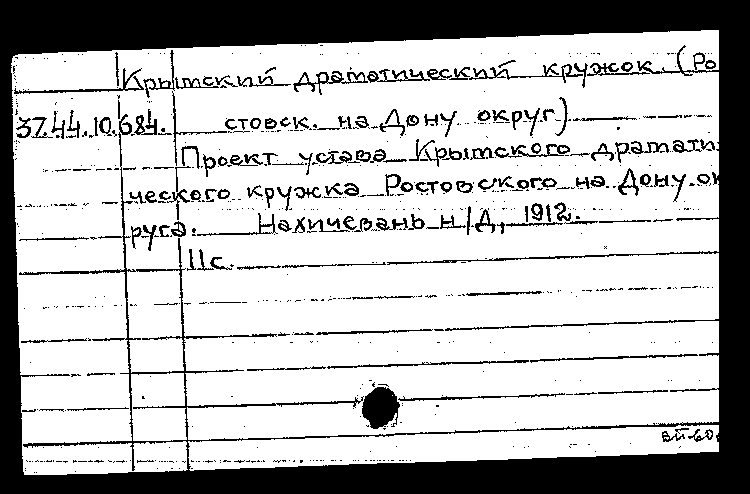 Крымский драматический кружок. (Ро
37.44.10.684. стовск. на Дону округ)
Проект устава Крымского драмати
ческого кружка Ростовского на Дону ок
руга. Нахичевань н/Д, 1912.
11с.
ВП-60